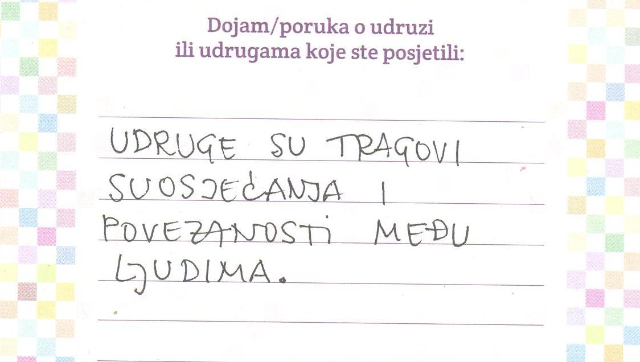 Dojam/poruka o udruzi
ili udrugama koje ste posjetili:
UDRUGE SU TRAGOVI
SUOSJEĆANJA I
POVEZANOSTI MEĐU
LJUDIMA.